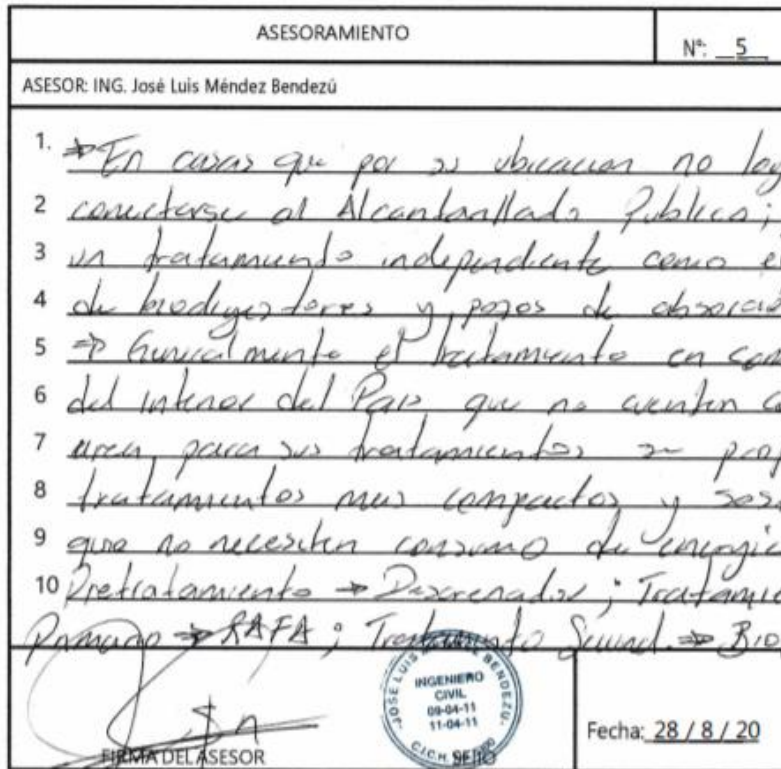 ASESORAMIENTO
N°: 5
ASESOR: ING. José Luis Méndez Bendezú
1. ⇒ En casas que por su ubicacion no log
2 conectarse al Alcantarillado Publico;
3 un tratamiento independiente como e
4 de biodigestores y pozos de absorcio
5 ⇒ Generalmente el tratamiento en
6 del interior del Pais que no cuenten c
7 area para sus tratamientos se prop
8 tratamientos mas compactos y
9 que no necesiten consumo de energia
10 Pretratamiento ⇒ Desarenador; Tratamie
Primario ⇒ RAFA; Tratamiento Secund. ⇒ Bio
JOSE LUIS BENDEZU
INGENIERO
CIVIL
09-04-11
11-04-11
C.I.C.H.
FIRMA DEL ASESOR
SELLO
Fecha: 28 / 8 / 20